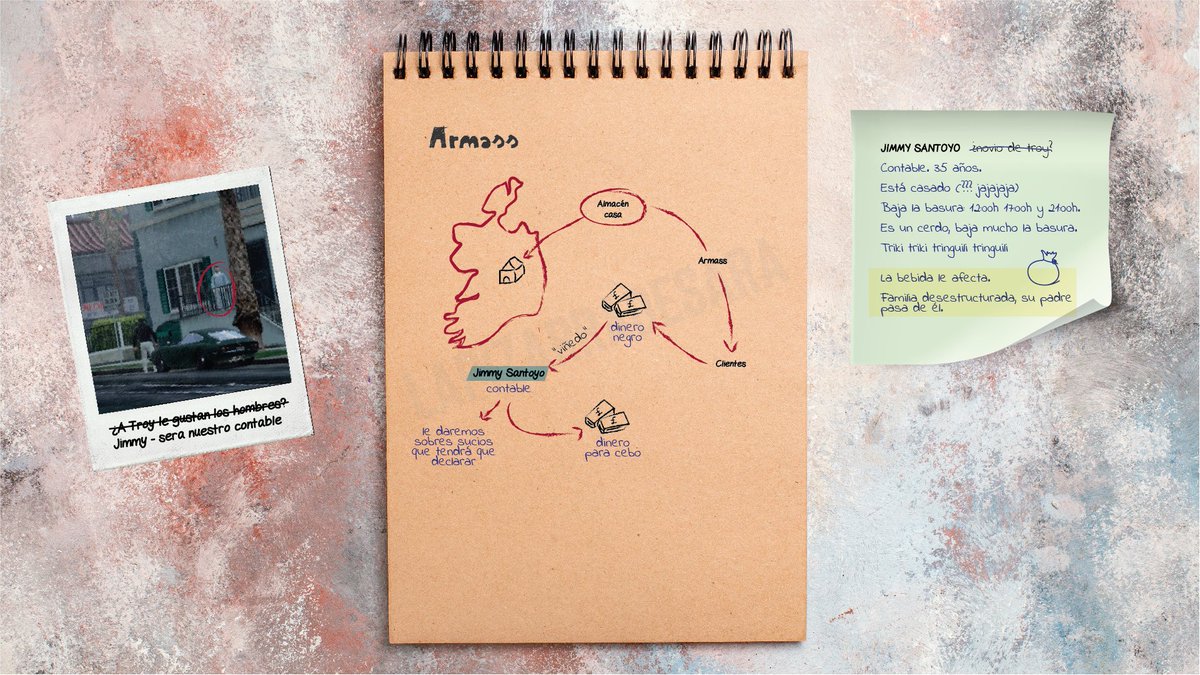 Armass
Almacén
casa
Armass
dinero
negro
"viñedo"
Clientes
Jimmy Santoyo
contable
le daremos
sobres sucios
que tendrá que
declarar
dinero
para cebo
¿A Troy le gustan los hombres?
Jimmy - sera nuestro contable
JIMMY SANTOYO ¿novio de troy?
Contable. 35 años.
Está casado (??? jajajaja)
Baja la basura: 1200h 1700h y 2100h.
Es un cerdo, baja mucho la basura.
Triki triki tringuili tringuili
La bebida le afecta.
Familia desestructurada, su padre
pasa de él.